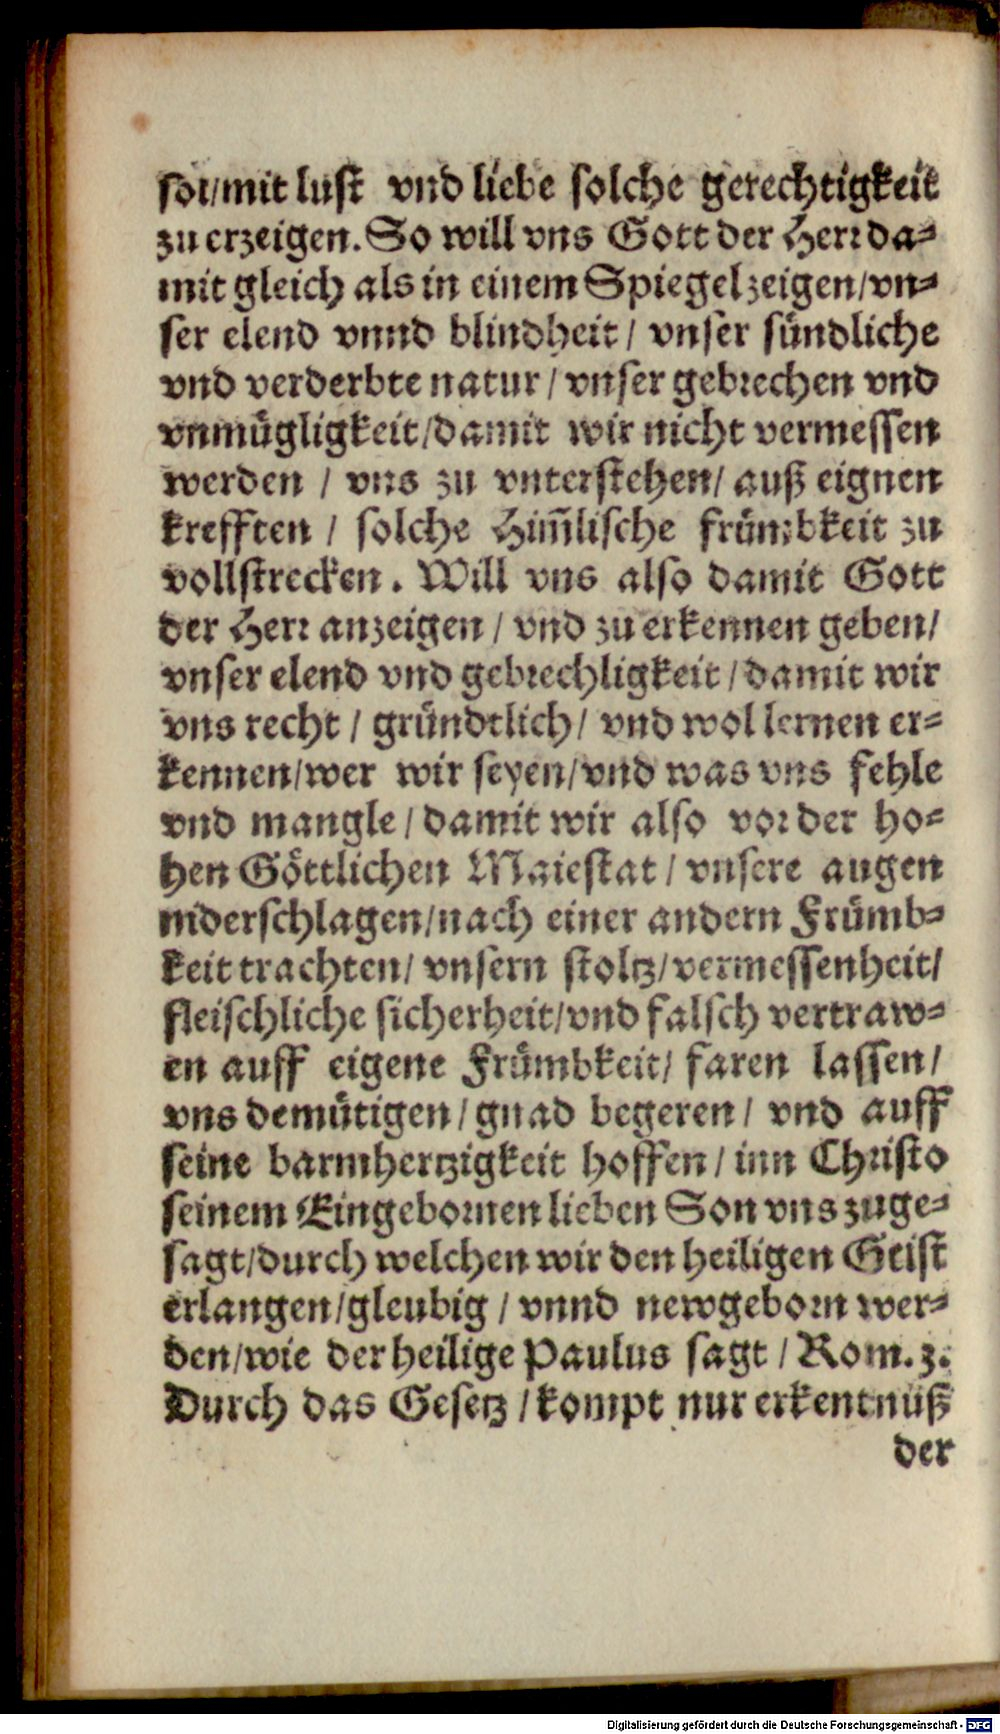 sol/mit lust vnd liebe solche gerechtigkeit
zu erzeigen. So will vns Gott der Herr da=
mit gleich als in einem Spiegel zeigen/vn=
ser elend vnnd blindheit / vnser sündliche
vnd verderbte natur / vnser gebrechen vnd
vnmügligkeit/damit wir nicht vermessen
werden / vns zu vnterstehen/ auß eignen
krefften / solche Him̃lische frümbkeit zu
vollstrecken. Will vns also damit Gott
der Herr anzeigen / vnd zu erkennen geben/
vnser elend vnd gebrechligkeit / damit wir
vns recht / gründtlich/ vnd wol lernen er=
kennen/wer wir seyen/vnd was vns fehle
vnd mangle / damit wir also vor der ho=
hen Göttlichen Maiestat / vnsere augen
niderschlagen/nach einer andern Frümb=
keit trachten/ vnsern stoltz/vermessenheit/
fleischliche sicherheit/vnd falsch vertraw=
en auff eigene Frümbkeit/ faren lassen/
vns demütigen / gnad begeren / vnd auff
seine barmhertzigkeit hoffen / inn Christo
seinem Eingebornen lieben Son vns zuge=
sagt/durch welchen wir den heiligen Geist
erlangen/gleubig / vnnd newgeborn wer=
den/wie der heilige Paulus sagt / Rom. 3.
Durch das Gesetz / kompt nur erkentnuß
der
Digitalisierung gefördert durch die Deutsche Forschungsgemeinschaft - DFG